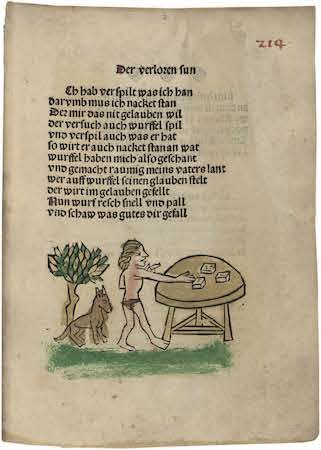 214
Der verloren sun
Ch hab verspilt was ich han
darvmb mus ich nacket stan
Der mir das nit gelauben wil
der versuch auch wurffel spil
vnd verspil auch was er hat
so wirt er auch nacket stan an wat
wurffel haben mich also geschant
vnd gemacht raumig meins vaters lant
wer auff wurffel seinen glauben stelt
der wirt im gelauben gefellt
Nun wurf resch snell vnd pall
vnd schaw was gutes dir gefall